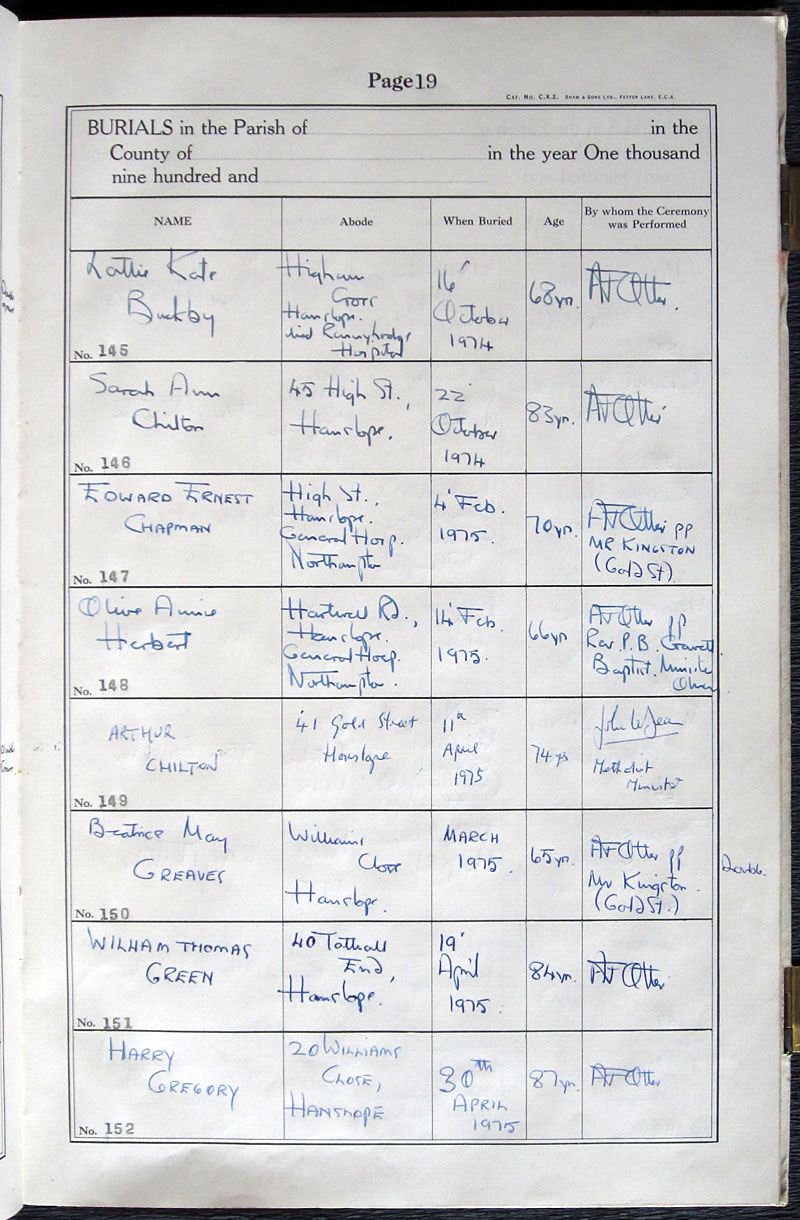 Page 19
CAT. NO. C.X.2. SHAW & SONS LTD., FETTER LANE, E.C.4.
BURIALS in the Parish of in the
County of in the year One thousand
nine hundred and
NAME Abode When Buried Age By whom the Ceremony was Performed
Lottie Kate
Buckby
No. 145
Higham
Cross
Hanslope.
died Rennyhedge
Hospital
16
October
1974
68 yrs.
A F Otter.
Sarah Ann
Chilton
No. 146
45 High St.,
Hanslope.
22
October
1974
83 yrs.
A F Otter
EDWARD ERNEST
CHAPMAN
No. 147
High St.,
Hanslope.
General Hosp.
Northampton
4 Feb.
1975.
70 yrs.
A F Otter pp
MR KINGSTON
(Gold St).
Olive Annie
Herbert
No. 148
Hartwell Rd.,
Hanslope.
General Hosp.
Northampton.
14 Feb.
1975.
66 yrs
A F Otter pp
Rev. P. B.
Baptist. Minister
Olney
ARTHUR
CHILTON
No. 149
41 Gold Street
Hanslope
11th
April
1975
74 yrs
John
Methodist
Minister
Beatrice May
GREAVES
No. 150
Williams
Close
Hanslope.
MARCH
1975.
65 yrs.
A F Otter pp
Mr Kingston.
(Gold St.)
Double.
WILLIAM THOMAS
GREEN
No. 151
40 Tathall
End,
Hanslope.
19
April
1975.
84 yrs.
A F Otter
HARRY
GREGORY
No. 152
20 WILLIAMS
CLOSE,
HANSLOPE
30th
APRIL
1975
87 yrs.
A F Otter